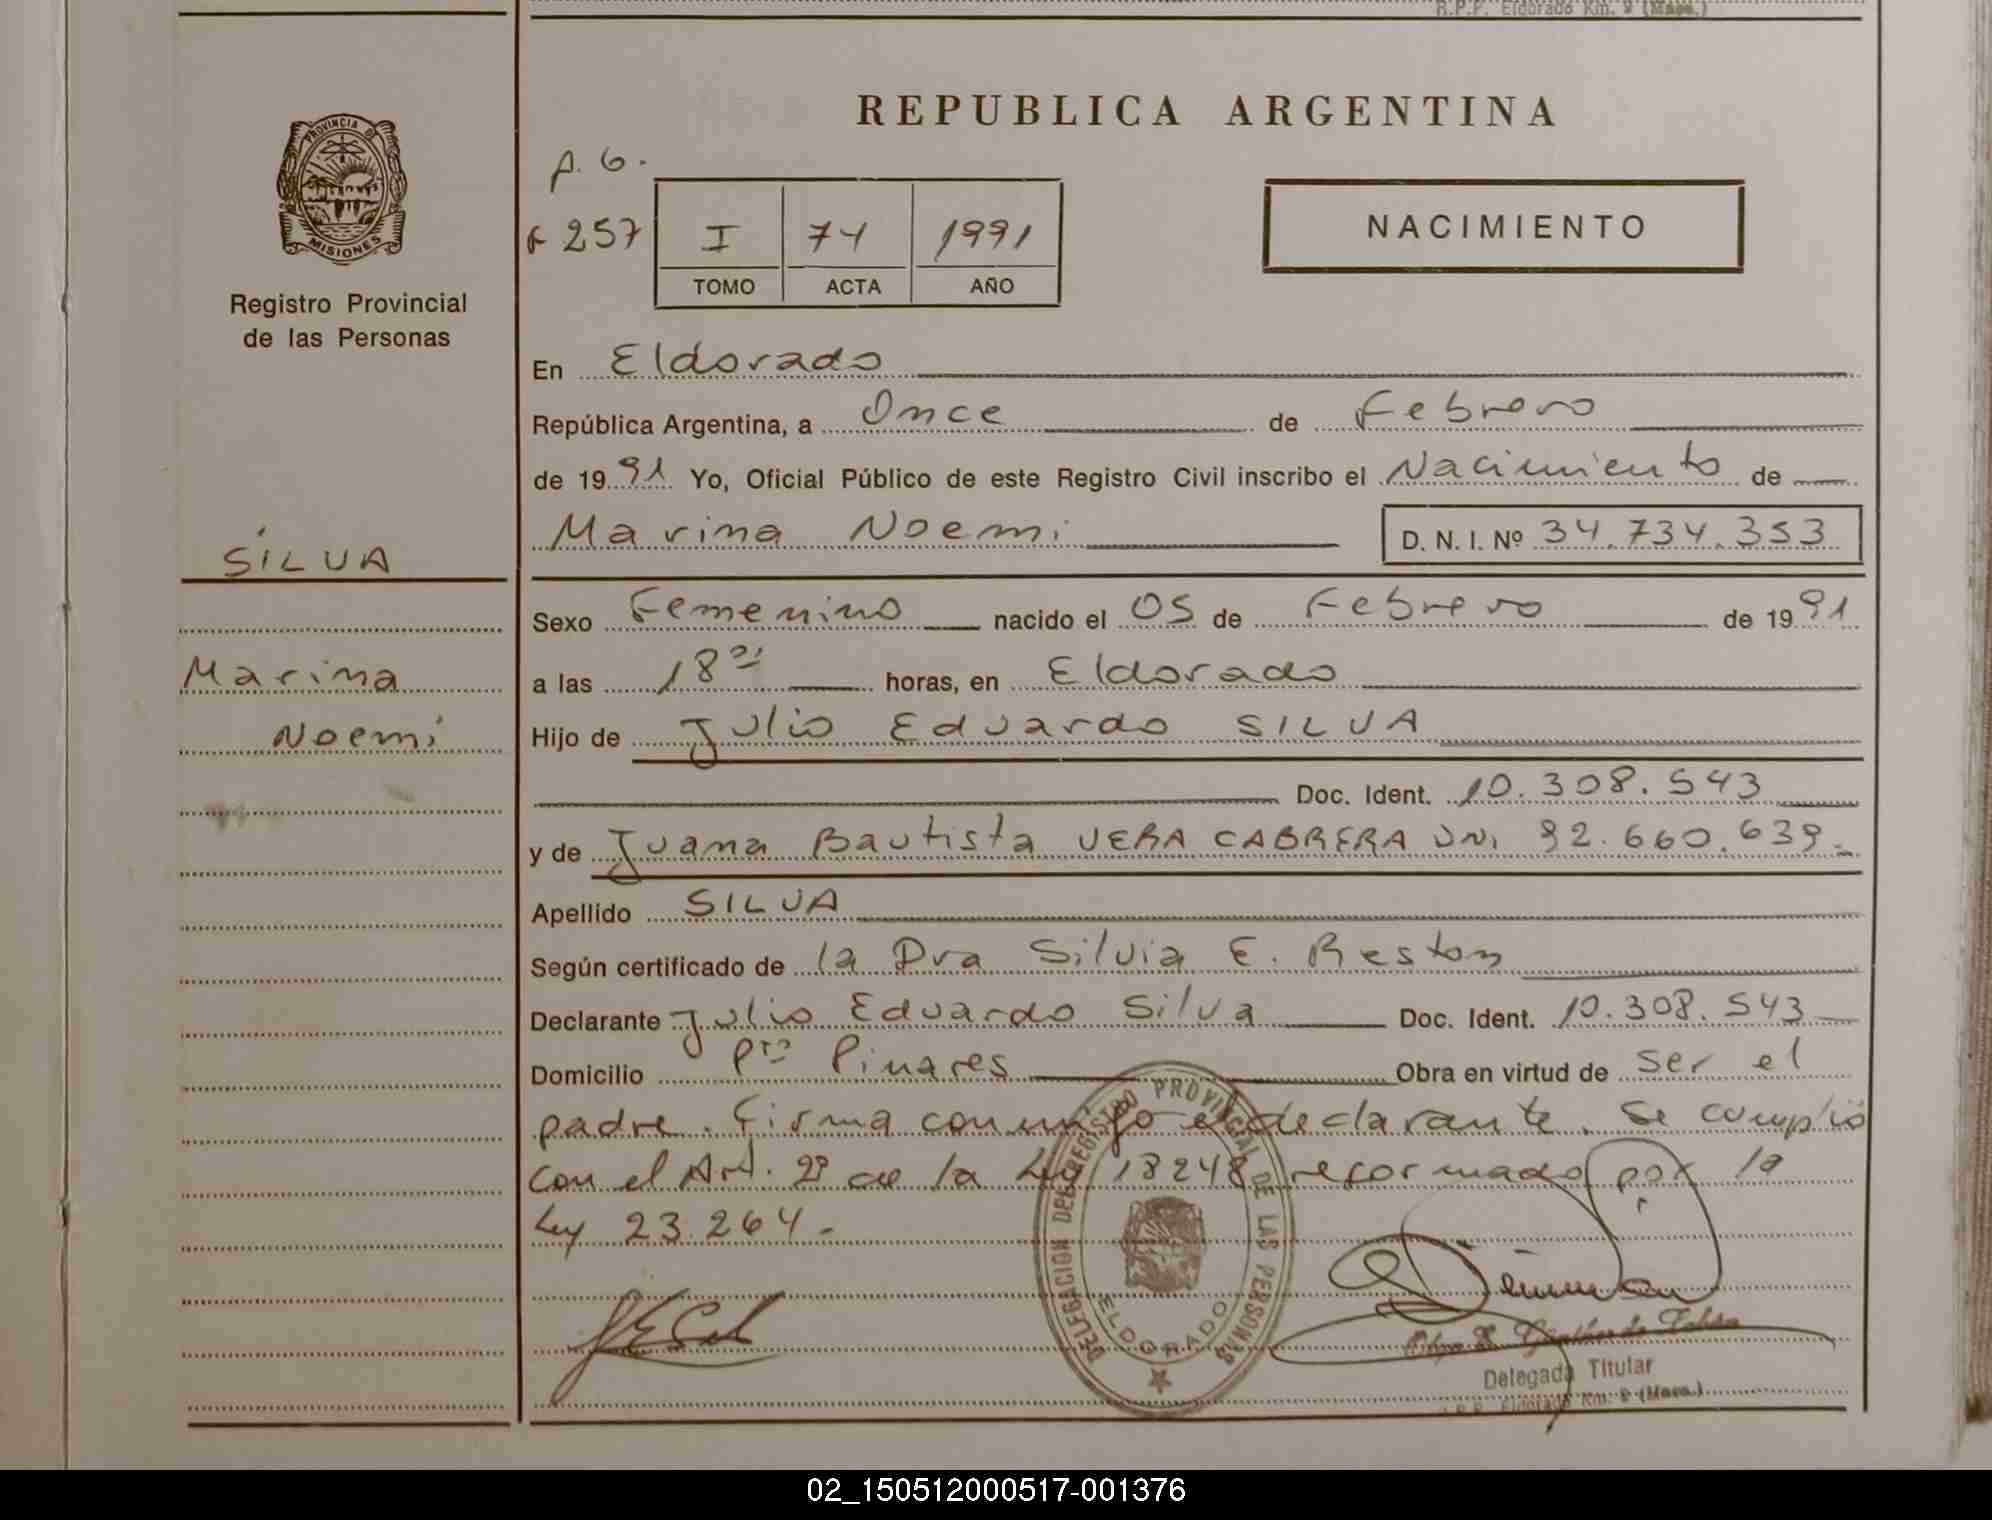 R.P.P. Eldorado Km. 9 (Mnes.)
REPUBLICA ARGENTINA
PROVINCIA DE
MISIONES
Registro Provincial
de las Personas
p. 6.
F 257
I 74 1991
TOMO ACTA AÑO
NACIMIENTO
En Eldorado
República Argentina, a Once de Febrero
de 1991 Yo, Oficial Público de este Registro Civil inscribo el Nacimiento de
Marina Noemi D. N. I. Nº 34.734.353
SILVA
Marina
Noemi
Sexo Femenino nacido el 05 de Febrero de 1991
a las 18 horas, en Eldorado
Hijo de Julio Eduardo SILVA
Doc. Ident. 10.308.543
y de Juana Bautista VERA CABRERA DNI 92.660.639.-
Apellido SILVA
Según certificado de la Dra Silvia E. Reston
Declarante Julio Eduardo Silva Doc. Ident. 10.308.543
Domicilio Pto Pinares Obra en virtud de ser el
padre. Firma conmigo el declarante. Se cumplió
con el Art. 2º de la Ley 18248 reformado por la
Ley 23.264.-
DELEGACION DEL REGISTRO PROVINCIAL DE LAS PERSONAS
ELDORADO
Delegada Titular
R.P.P. Eldorado Km. 9 (Mnes.)
02_150512000517-001376